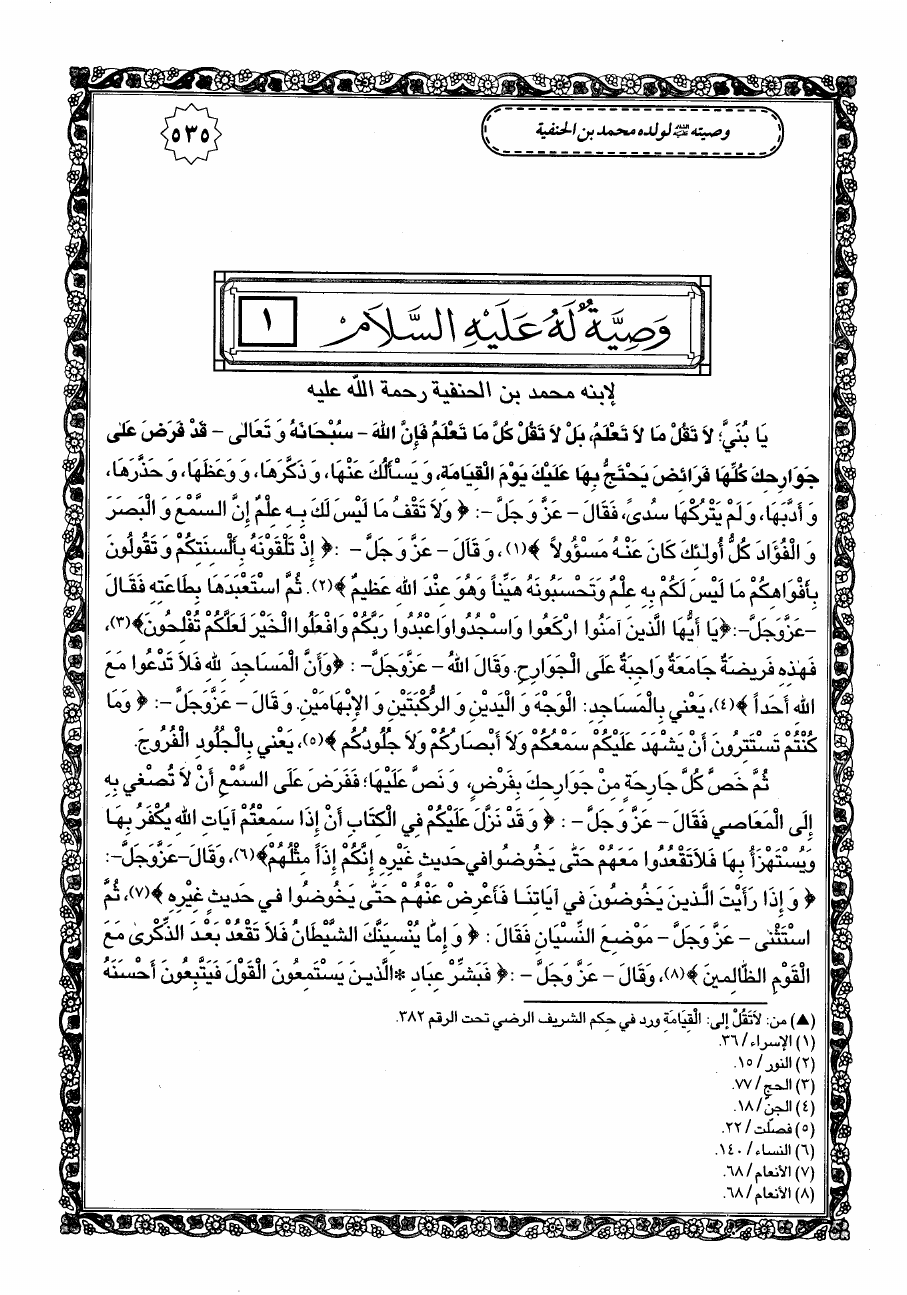 وصيته عليه السلام لولده محمد بن الحنفية
٥٣٥
وَصِيَّةٌ لَهُ عَلَيْهِ السَّلَامُ
١
لإبنه محمد بن الحنفية رحمة اللّٰه عليه
يَا بُنَيَّ؛ لاَ تَقُلْ مَا لاَ تَعْلَمُ، بَلْ لاَ تَقُلْ كُلَّ مَا تَعْلَمُ فَإِنَّ اللّٰهَ - سُبْحَانَهُ وَ تَعَالى - قَدْ فَرَضَ عَلى
جَوَارِحِكَ كُلِّهَا فَرَائِضَ يَحْتَجُّ بِهَا عَلَيْكَ يَوْمَ الْقِيَامَةِ، وَ يَسْأَلُكَ عَنْهَا، وَ ذَكَّرَهَا، وَ وَعَظَهَا، وَ حَذَّرَهَا،
وَ أَدَّبَهَا، وَ لَمْ يَتْرُكْهَا سُدىً، فَقَالَ - عَزَّ وَ جَلَّ -: ﴿ وَلاَ تَقْفُ مَا لَيْسَ لَكَ بِهِ عِلْمٌ إِنَّ السَّمْعَ وَ الْبَصَرَ
وَ الْفُؤَادَ كُلُّ أُولـٰئِكَ كَانَ عَنْهُ مَسْؤُولاً ﴾(١)، وَ قَالَ - عَزَّ وَ جَلَّ - :﴿ إِذْ تَلَقَّوْنَهُ بِأَلْسِنَتِكُمْ وَ تَقُولُونَ
بِأَفْوَاهِكُمْ مَا لَيْسَ لَكُمْ بِهِ عِلْمٌ وَتَحْسَبُونَهُ هَيِّناً وَهُوَ عِنْدَ اللّٰهِ عَظِيمٌ ﴾(٢). ثُمَّ اسْتَعْبَدَهَا بِطَاعَتِهِ فَقَالَ
-عَزَّوَجَلَّ-:﴿يَا أَيُّهَا الَّذينَ آمَنُوا ارْكَعُوا وَاسْجُدُواوَاعْبُدُوا رَبَّكُمْ وَافْعَلُوا الْخَيْرَ لَعَلَّكُمْ تُفْلِحُونَ﴾(٣)،
فَهٰذِهِ فَرِيضَةٌ جَامَعَةٌ وَاجِبَةٌ عَلَى الْجَوَارِحِ. وَقَالَ اللّٰهُ - عَزَّوَجَلَّ- : ﴿وَأَنَّ الْمَسَاجِدَ لِلّٰهِ فَلاَ تَدْعُوا مَعَ
اللّٰهِ أَحَداً ﴾(٤)، يَعْنِي بِالْمَسَاجِدِ: الْوَجْهَ وَ الْيَدَيْنِ وَ الرُّكْبَتَيْنِ وَ الإِبْهَامَيْنِ. وَ قَالَ - عَزَّوَجَلَّ -: ﴿ وَمَا
كُنْتُمْ تَسْتَتِرُونَ أَنْ يَشْهَدَ عَلَيْكُمْ سَمْعُكُمْ وَلاَ أَبْصَارُكُمْ وَلاَ جُلُودُكُمْ ﴾(٥)، يَعْنِي بِالْجُلُودِ الْفُرُوجَ.
ثُمَّ خَصَّ كُلَّ جَارِحَةٍ مِنْ جَوَارِحِكَ بِفَرْضٍ، وَ نَصَّ عَلَيْهَا؛ فَفَرَضَ عَلَى السَّمْعِ أَنْ لاَ تُصْغِي بِهِ
إِلَى الْمَعَاصِي فَقَالَ - عَزَّ وَ جَلَّ - : ﴿ وَ قَدْ نَزَّلَ عَلَيْكُمْ فِي الْكِتَابِ أَنْ إِذَا سَمِعْتُمْ آيَاتِ اللّٰهِ يُكْفَرُ بِهَا
وَيُسْتَهْزَأُ بِهَا فَلاَتَقْعُدُوا مَعَهُمْ حَتّٰى يَخُوضُوافي حَدِيثٍ غَيْرِهِ إِنَّكُمْ إِذاً مِثْلُهُمْ﴾(٦)، وَقَالَ-عَزَّوَجَلَّ-:
﴿ وَ إِذَا رَأَيْتَ الَّذينَ يَخُوضُونَ في آيَاتِنَا فَأَعْرِضْ عَنْهُمْ حَتّٰى يَخُوضُوا في حَديثٍ غَيْرِهِ ﴾(٧)، ثُمَّ
اسْتَثْنٰى - عَزَّ وَجَلَّ - مَوْضِعَ النِّسْيَانِ فَقَالَ : ﴿ وَ إِمَّا يُنْسِيَنَّكَ الشَّيْطَانُ فَلاَ تَقْعُدْ بَعْدَ الذِّكْرىٰ مَعَ
الْقَوْمِ الظَّالِمينَ ﴾(٨)، وَقَالَ - عَزَّ وَجَلَّ - :﴿ فَبَشِّرْ عِبَادِ *الَّذينَ يَسْتَمِعُونَ الْقَوْلَ فَيَتَّبِعُونَ أَحْسَنَهُ
(▲) من: لاَتَقُلْ إلى: الْقِيَامَةِ ورد في حكم الشريف الرضي تحت الرقم ٣٨٢.
(١) الإسراء / ٣٦.
(٢) النور / ١٥.
(٣) الحج / ٧٧.
(٤) الجنّ / ١٨.
(٥) فصلّت / ٢٢.
(٦) النساء / ١٤٠.
(٧) الأنعام / ٦٨.
(٨) الأنعام / ٦٨.